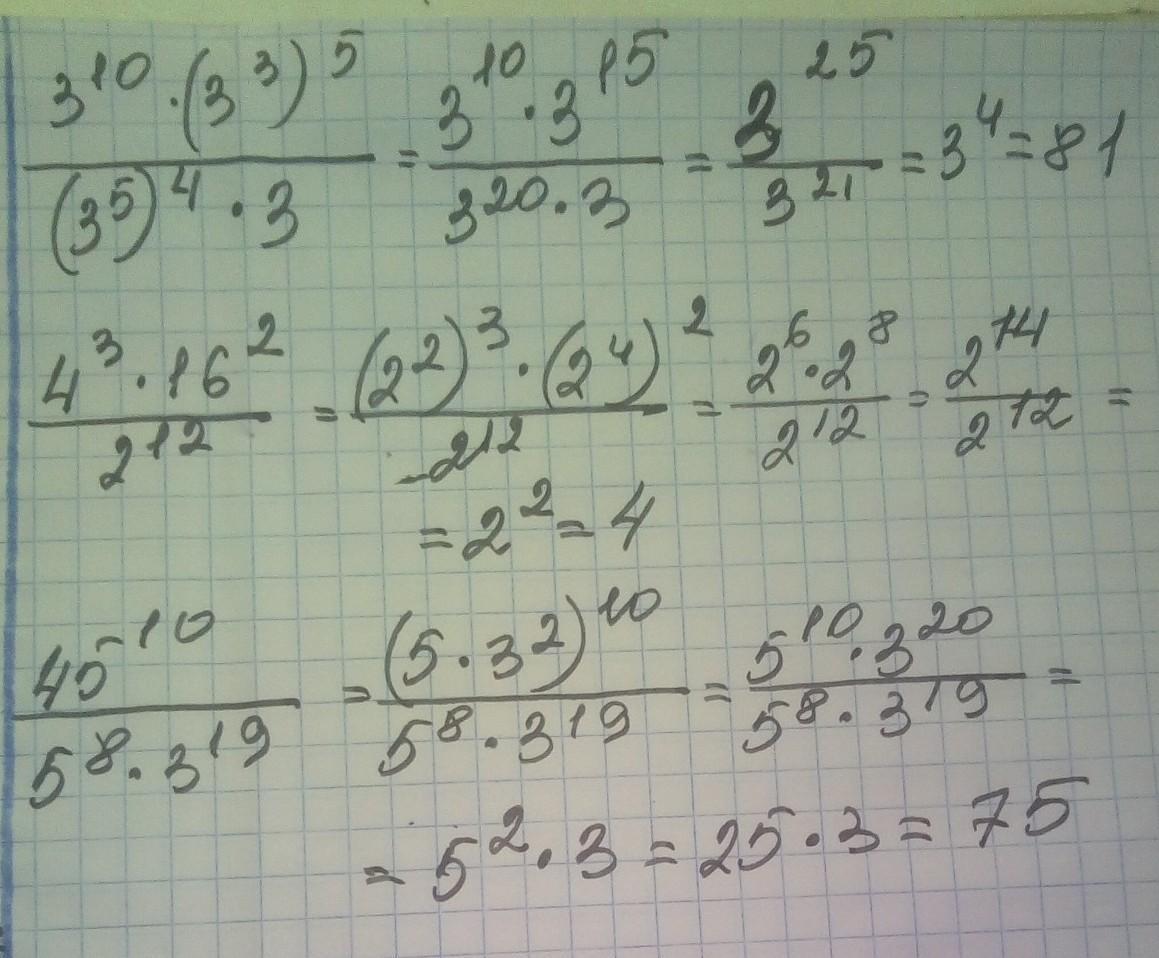 3^10 · (3^3)^5 / (3^5)^4 · 3 = 3^10 · 3^15 / 3^20 · 3 = 3^25 / 3^21 = 3^4 = 81
4^3 · 16^2 / 2^12 = (2^2)^3 · (2^4)^2 / 2^12 = 2^6 · 2^8 / 2^12 = 2^14 / 2^12 =
= 2^2 = 4
45^10 / 5^8 · 3^19 = (5 · 3^2)^10 / 5^8 · 3^19 = 5^10 · 3^20 / 5^8 · 3^19 =
= 5^2 · 3 = 25 · 3 = 75